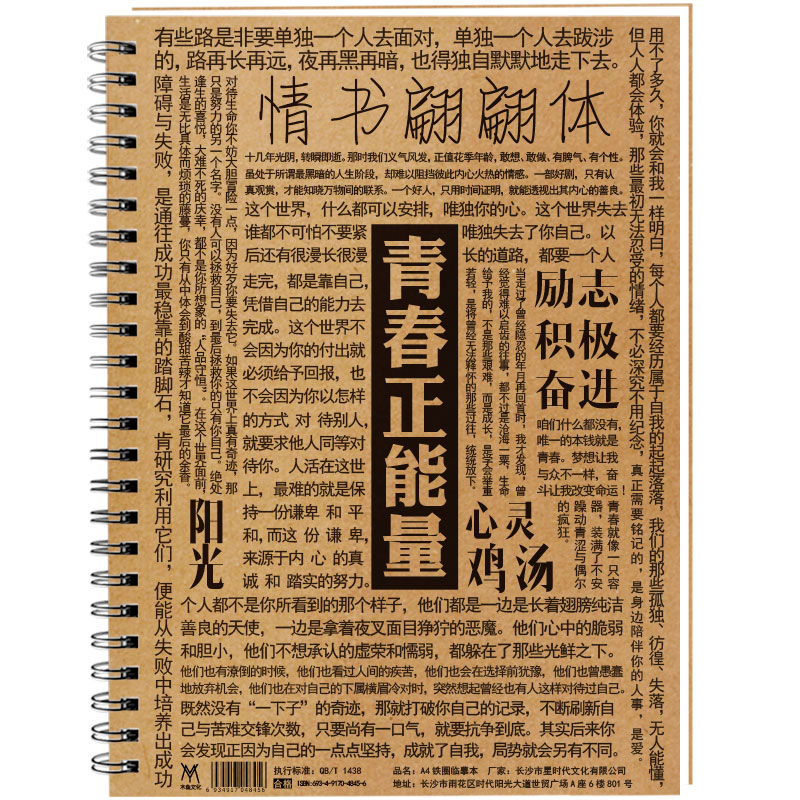 有些路是非要单独一个人去面对，单独一个人去跋涉
的，路再长再远，夜再黑再暗，也得独自默默地走下去。
障碍与失败，是通往成功最稳靠的踏脚石，肯研究利用它们，便能从失败中培养出成功
对待生命你不妨大胆冒险一点，因为好歹你要失去它，如果这世界上真有奇迹，那
只是努力的另一个名字，没有人可以拯救自己，到最后拯救你的只有自己。绝处
逢生的喜悦，大难不死的庆幸，都不是你所想象的“人品守恒”。在这个世界面前，
生活是无比具体而烦琐的藤蔓，你只有从中体会到酸甜苦辣才知道它最后的余香。
阳光
情书翩翩体
十几年光阴，转瞬即逝。那时我们义气风发，正值花季年龄，敢想、敢做、有脾气、有个性。
虽处于所谓最黑暗的人生阶段，却难以阻挡彼此内心火热的情感。一部好剧，只有认
真观赏，才能知晓万物间的联系。一个好人，只用时间证明，就能透视出其内心的善良。
这个世界，什么都可以安排，唯独你的心。这个世界失去
谁都不可怕不要紧 唯独失去了你自己。以
后还有很漫长很漫 长的道路，都要一个人
走完，都是靠自己，
凭借自己的能力去
完成。这个世界不
会因为你的付出就
必须给予回报，也
不会因为你以怎样
的方式 对 待别人，
就要求他人同等对
待你。人活在这世
上，最难的就是保
持一份谦卑 和 平
和，而这 份 谦 卑，
来源于内 心 的真
诚 和 踏实的努力。
青春正能量
当走过了曾经隐忍的年月再回首时，我才发现，曾
经觉得难以启齿的往事，都不过是沧海一粟，生命
给予我的，不是那些艰难，而是成长，是学会举重
若轻，是将曾经无法释怀的那些过往，统统放下。
励志
积极
奋进
咱们什么都没有，
唯一的本钱就是
青春。梦想让我
与众不一样，奋
斗让我改变命运！
心灵
鸡汤
青春就像一只容
器，装满了不安
躁动青涩与偶尔
的疯狂。
用不了多久，你就会和我一样明白，每个人都要经历属于自我的起起落落，我们的那些孤独、彷徨、失落，无人能懂，
但人人都会体验，那些最初无法忍受的情绪，不必深究不用纪念，真正需要铭记的，是身边陪伴你的人事，是爱。
个人都不是你所看到的那个样子，他们都是一边是长着翅膀纯洁
善良的天使，一边是拿着夜叉面目狰狞的恶魔。他们心中的脆弱
和胆小，他们不想承认的虚荣和懦弱，都躲在了那些光鲜之下。
他们也有潦倒的时候，他们也看过人间的疾苦，他们也会在选择前犹豫，他们也曾愚蠢
地放弃机会，他们也在对自己的下属横眉冷对时，突然想起曾经也有人这样对待过自己。
既然没有“一下子”的奇迹，那就打破你自己的记录，不断刷新自
己与苦难交锋次数，只要尚有一口气，就要抗争到底。其实后来你
会发现正因为自己的一点点坚持，成就了自我，局势就会另有不同。
木鱼文化
6 934917 048456
执行标准：QB/T 1438
合格 ISBN:693-4-9170-4845-6
品名：A4铁圈临摹本 厂家：长沙市星时代文化有限公司
地址：长沙市雨花区时代阳光大道世贸广场A座6楼801号